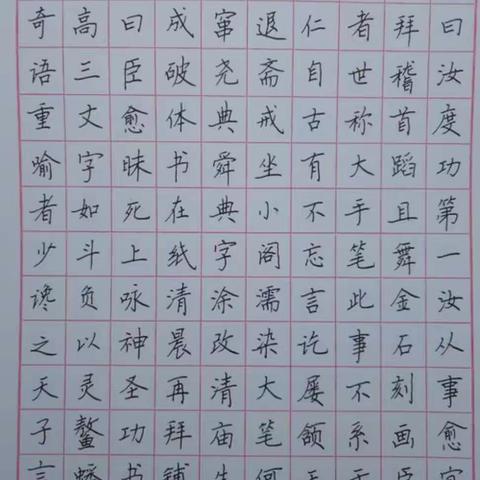 曰汝度功第一汝从事愈宜
拜稽首蹈且舞金石刻画臣
者世称大手笔此事不系于
仁自古有不忘言讫屡颔天
退斋戒坐小阁濡染大笔何
窜尧典舜典字涂改清庙生
成破体书在纸清晨再拜铺
曰臣愈昧死上咏神圣功书
高三文字如斗负以灵鳌蟠
奇语重喻者少谗之天子言